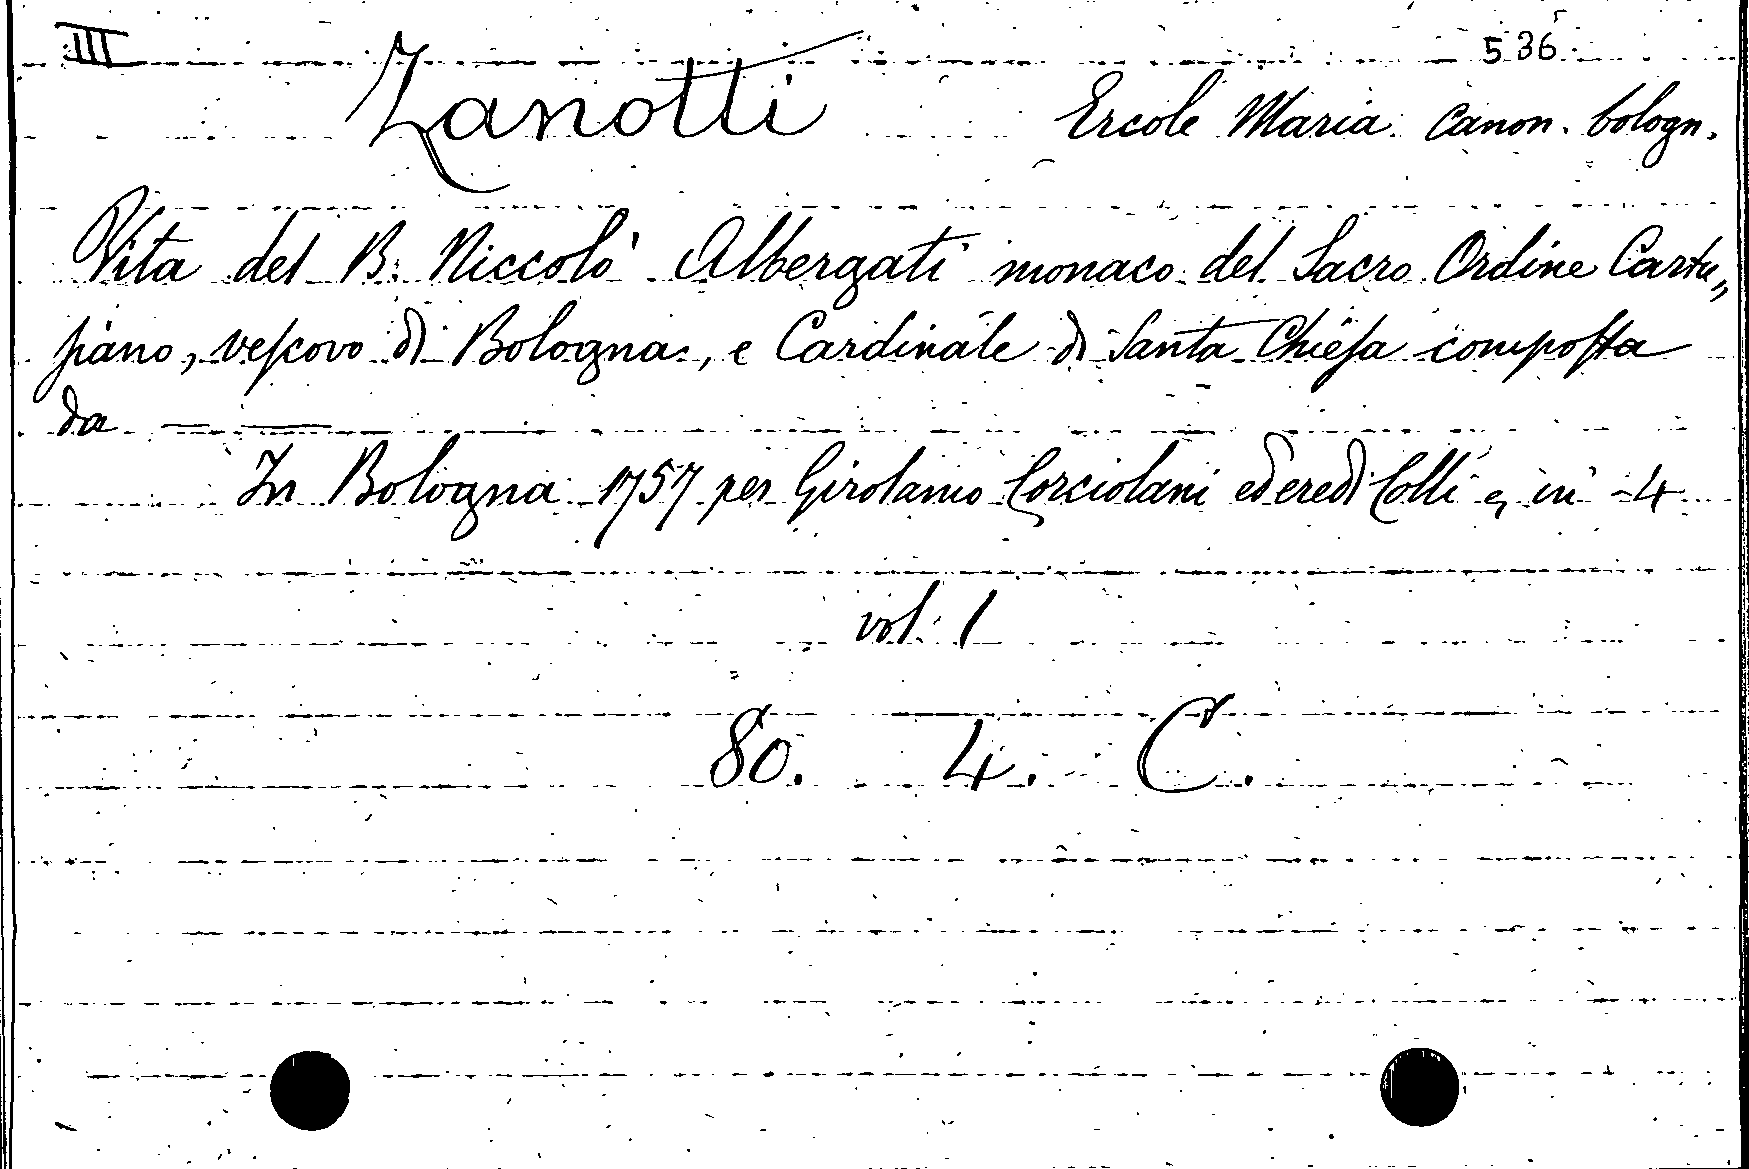 III 536
Zanotti Ercole Maria canon. bologn.
Vita del B. Niccolò Albergati monaco del Sacro Ordine Cartu„
ſiano, veſcovo di Bologna, e Cardinale di Santa Chieſa compoſta
da — —
In Bologna 1757 per Girolamo Corciolani ed eredi Colli e, in 4
vol. 1
80. 4. C.